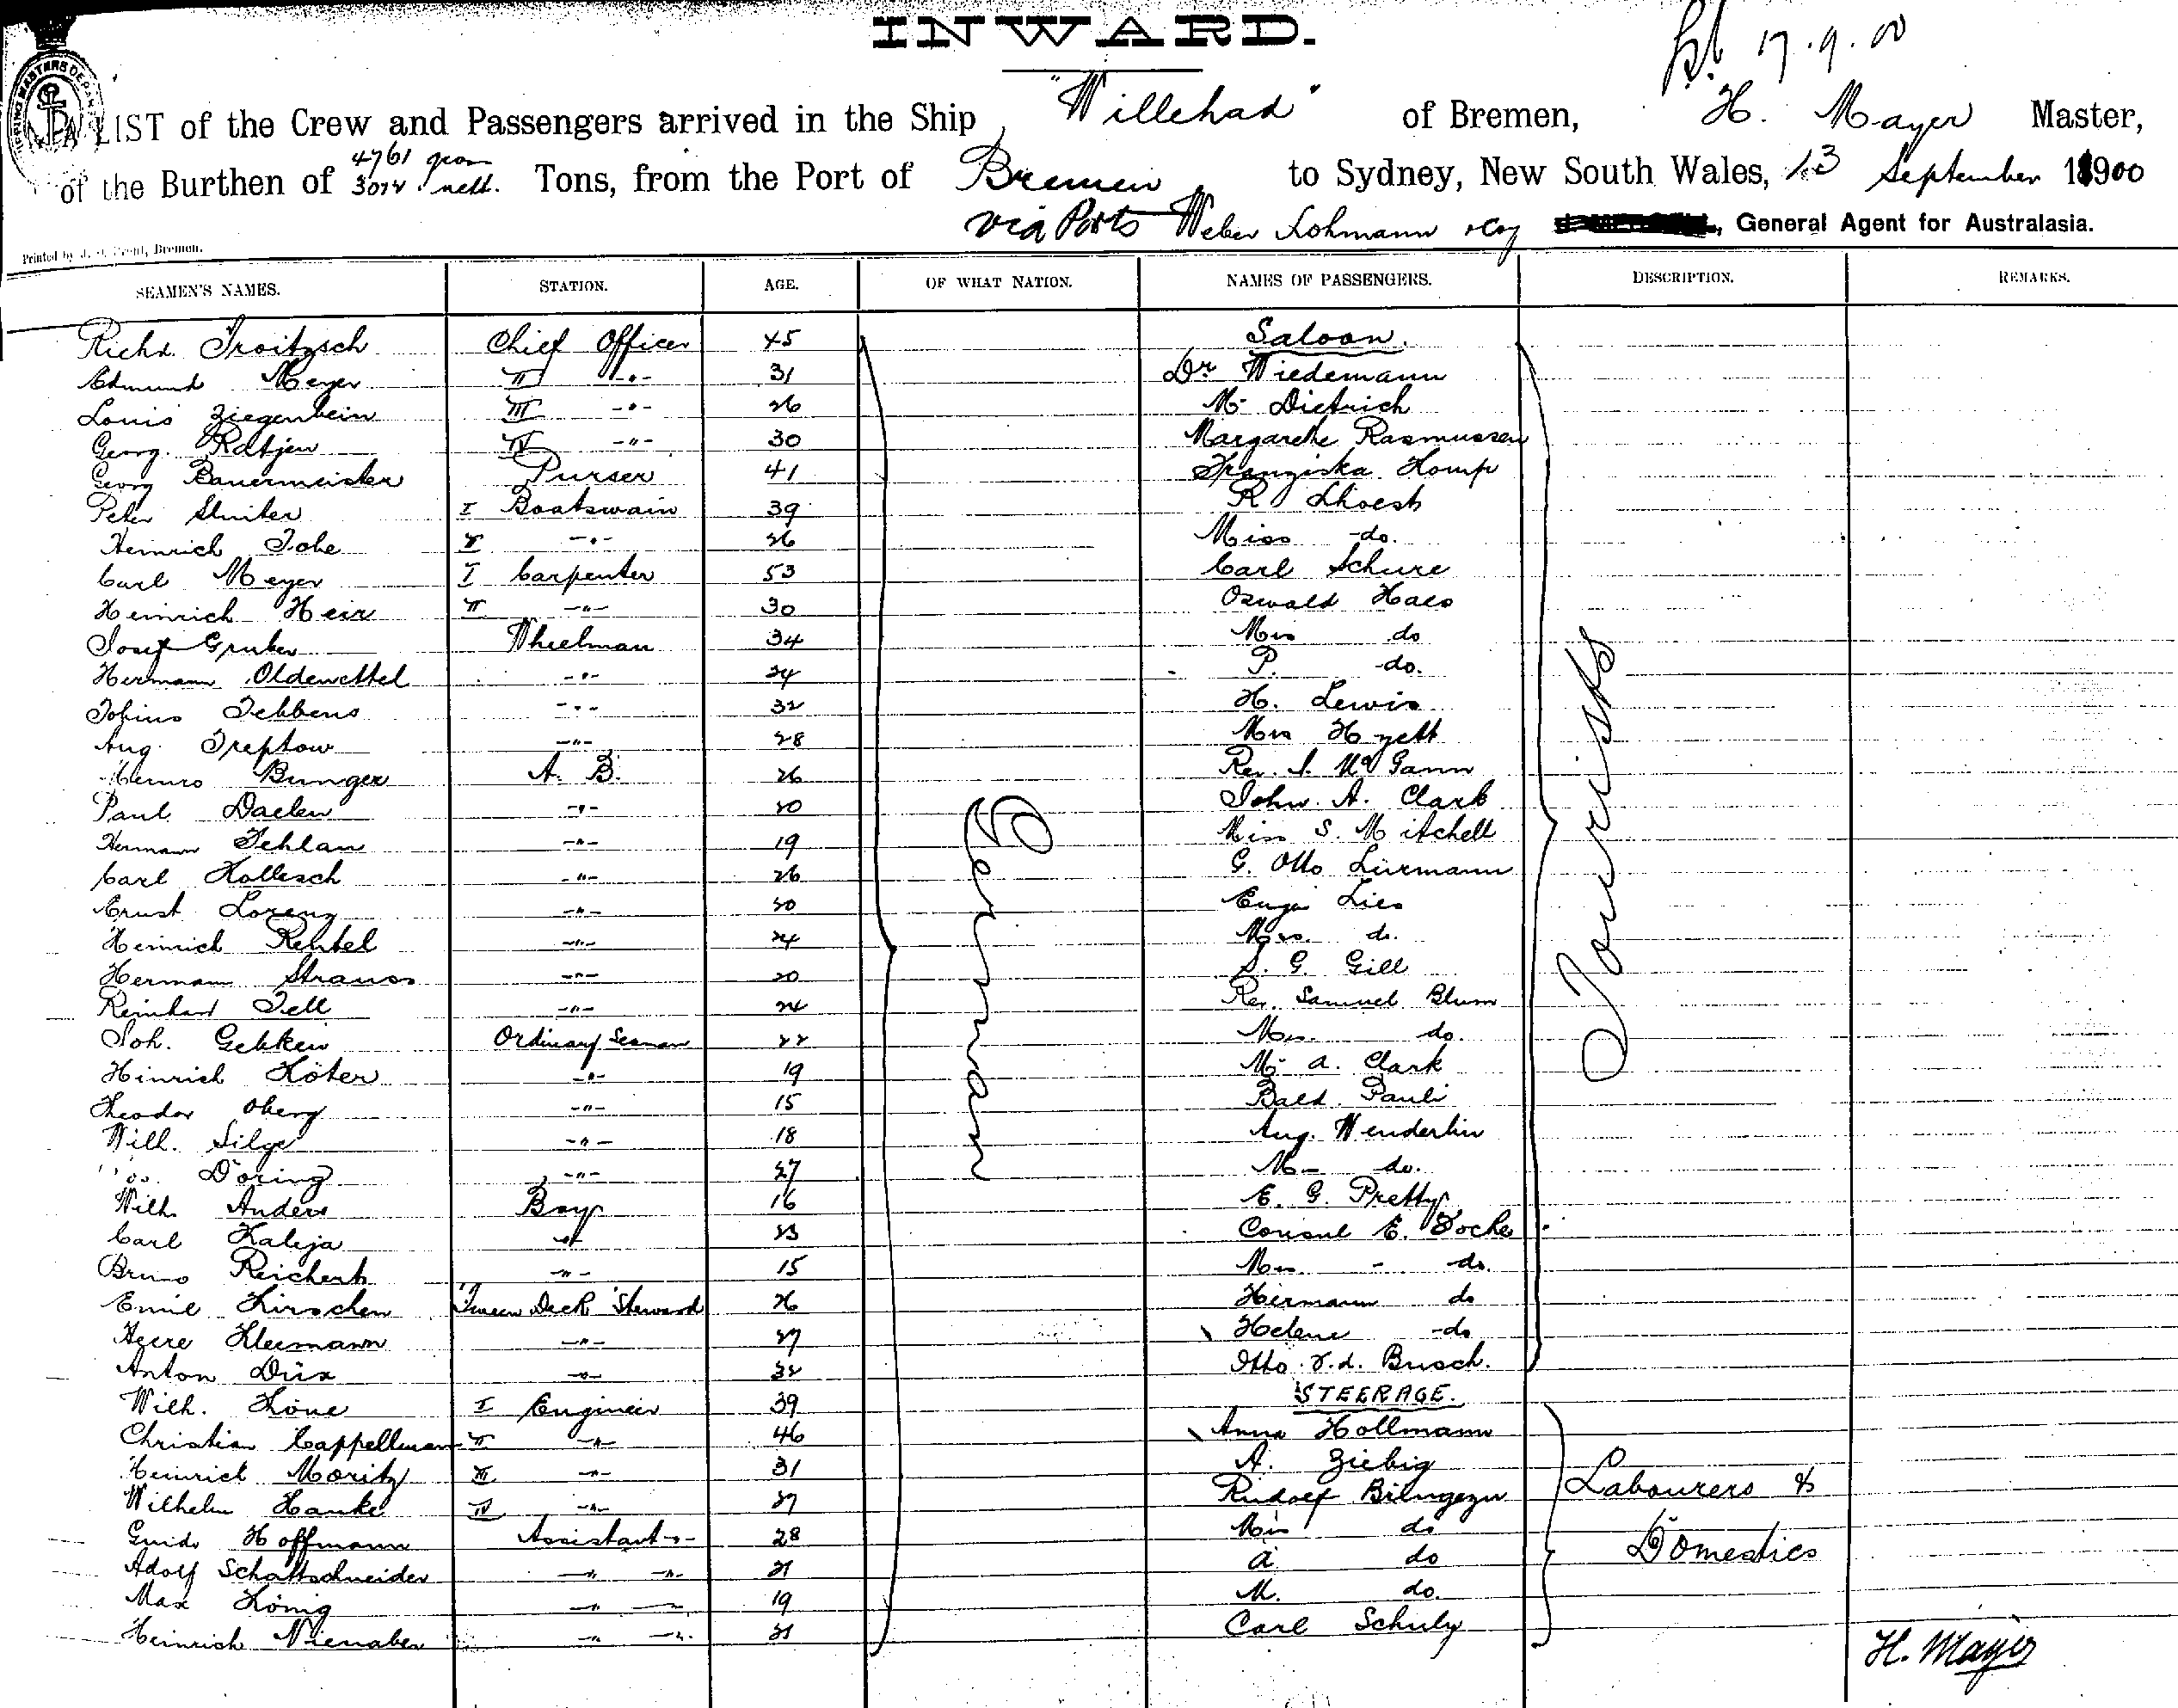 INWARD.
17.9.00
A LIST of the Crew and Passengers arrived in the Ship "Willehad" of Bremen, H. Mayer Master,
of the Burthen of 4761 gross 3012 nett. Tons, from the Port of Bremen to Sydney, New South Wales, 13 September 1900
via Ports Weber Lohmann & Coy , General Agent for Australasia.
Printed by Bremen.
SEAMEN'S NAMES. STATION. AGE. OF WHAT NATION. NAMES OF PASSENGERS. DESCRIPTION. REMARKS.
Richd. Troitzsch Chief Officer 45 Saloon.
Edmund Meyer II -"- 31 Dr Wiedemann
Louis Ziegenbein III -"- 26 Mr Dietrich
Georg Ratjen IV -"- 30 Margarethe Rasmussen
Georg Bauermeister Purser 41 Franziska Homp
Peter Sluiter I Boatswain 39 R Lhoest
Heinrich Tohe II -"- 26 Miss -do.
Carl Meyer I Carpenter 53 Carl Schure
Heinrich Heix II -"- 30 Oswald Haes
Josef Gruber Wheelman 34 Mrs do
Hermann Oldewettel -"- 24 P. -do.
Tebbens -"- 32 H. Lewis
Aug. Treptow -"- 28 Mrs Hyett
Bunger A. B. 26 Rev. Mc Gann
Paul Daelen -"- 20 John. A. Clark
Hermann Fehlau -"- 19 Miss S. Mitchell
Carl Kollesch -"- 26 G. Otto Lürmann
Ernst Lorenz -"- 20 Lies
Heinrich Rentel -"- 24 Mrs. do.
Hermann Strauss -"- 20 S. G. Gill
Reinhard Tell -"- 24 Rev. Samuel Blum
Joh. Gekken Ordinary Seaman 22 Mrs. do.
Hinrich Köter -"- 19 Mr A. Clark
Theodor Oberg -"- 15 Bald. Pauli
Wilh. Silge -"- 18 Aug. Wenderlin
Döring -"- 27 M do.
Wilh. Anders Boy 16 E. G. Pretty
Carl Kaleja -"- 23 Consul E.
Bruno Reichert -"- 15 Mrs. - do.
Emil Kirschen Tween Deck Steward 26 Hermann do
Kleemann -"- 27 Helene -do
Anton Düx -"- 32 Otto v.d. Busch.
Wilh. Köne I Engineer 39 STEERAGE.
Christian Kappellmann II -"- 46 Anna Hollmann
Heinrich Moritz III -"- 31 A. Ziebig
Wilhelm Hanke IV -"- 27 Rudolf
Guido Hoffmann Assistant -"- 28 Mrs do
Adolf Schattschneider -"- -"- 21 A do
Max König -"- -"- 19 M. do.
Heinrich Nienaber -"- -"- 21 Carl Schulz
German
Tourists
Labourers &
Domestics
H. Mayer